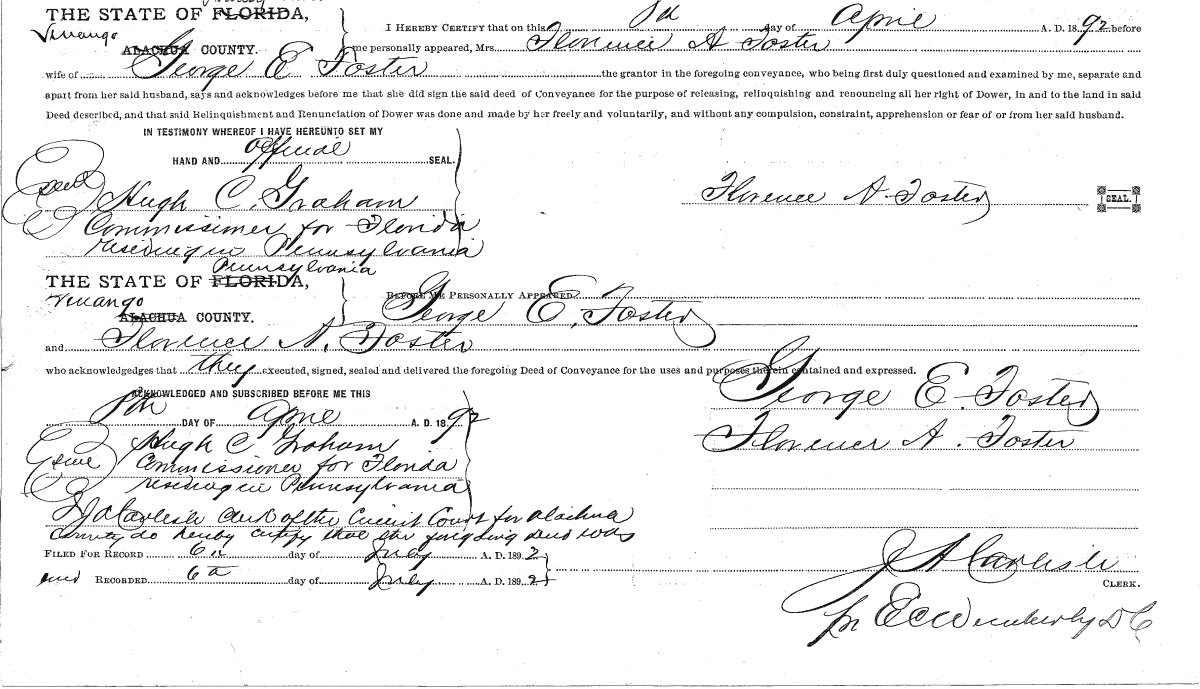 THE STATE OF FLORIDA,
Venango
ALACHUA COUNTY.
I HEREBY CERTIFY that on this day of April A. D. 1892 before
me personally appeared, Mrs. Florence A Foster
wife of George E Foster the grantor in the foregoing conveyance, who being first duly questioned and examined by me, separate and
apart from her said husband, says and acknowledges before me that she did sign the said deed of Conveyance for the purpose of releasing, relinquishing and renouncing all her right of Dower, in and to the land in said
Deed described, and that said Relinquishment and Renunciation of Dower was done and made by her freely and voluntarily, and without any compulsion, constraint, apprehension or fear of or from her said husband.
IN TESTIMONY WHEREOF I HAVE HEREUNTO SET MY
HAND AND official SEAL.
Seal
Hugh C. Graham
Commissioner for Florida
residing in Pennsylvania
Florence A. Foster SEAL.
Pennsylvania
THE STATE OF FLORIDA,
Venango
ALACHUA COUNTY.
BEFORE ME PERSONALLY APPEARED
George E. Foster
and Florence A. Foster
who acknowledgedges that they executed, signed, sealed and delivered the foregoing Deed of Conveyance for the uses and purposes therein contained and expressed.
ACKNOWLEDGED AND SUBSCRIBED BEFORE ME THIS
DAY OF April A. D. 1892
Seal
Hugh C Graham
Commissioner for Florida
residing in Pennsylvania
George E. Foster
Florence A. Foster
I J A Carlisle Clerk of the Circuit Court for Alachua
County do hereby certify that the foregoing deed was
FILED FOR RECORD 6th day of July A. D. 1892
and RECORDED 6th day of July A. D. 1892
J A Carlisle
CLERK.
per E C Wimberly D C